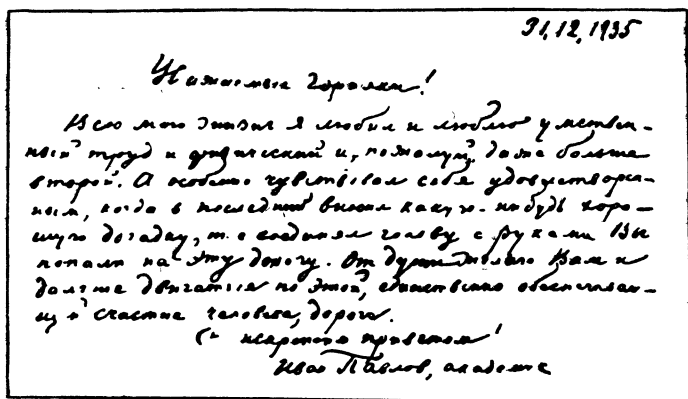 31.12.1935
Уважаемые горняки!
Всю мою жизнь я любил и люблю умствен-
ный труд и физический и, пожалуй, даже больше
второй. А особенно чувствовал себя удовлетворен-
ным, когда в последний вносил какую-нибудь хоро-
шую догадку, т.е. соединял голову с руками. Вы
попали на эту дорогу. От души желаю Вам и
дальше двигаться по этой, единственно обеспечиваю-
щей счастье человека, дороге.
С искренним приветом!
Иван Павлов, академик